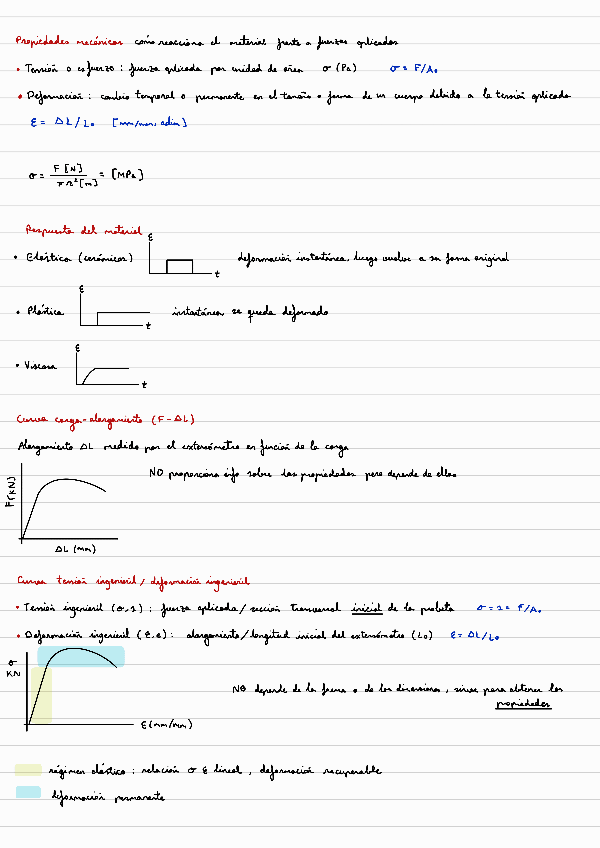 Propiedades mecánicas como reacciona el material frente a fuerzas aplicadas
• Tensión o esfuerzo : fuerza aplicada por unidad de área σ (Pa) σ = F/A₀
• Deformación : cambio temporal o permanente en el tamaño o forma de un cuerpo debido a la tensión aplicada
ε = ΔL/L₀ [mm/mm, adim]
σ = F [N] / π r² [m] = [MPa]
Respuesta del material
• Elástica (cerámicos) ε t deformación instantánea, luego vuelve a su forma original
• Plástica ε t instantánea, se queda deformado
• Viscosa ε t
Curva carga-alargamiento (F - ΔL)
Alargamiento ΔL medido por el extensómetro en función de la carga
F(KN) NO proporciona info sobre las propiedades pero depende de ellas
ΔL (mm)
Curva tensión ingenieril / deformación ingenieril
• Tensión ingenieril (σ, s) : fuerza aplicada / sección transversal inicial de la probeta σ = s = F/A₀
• Deformación ingenieril (ε, e) : alargamiento / longitud inicial del extensómetro (L₀) ε = ΔL/L₀
σ
KN
NO depende de la forma o de las dimensiones, sirve para obtener las
propiedades
ε (mm/mm)
régimen elástico : relación σ ε lineal, deformación recuperable
deformación permanente